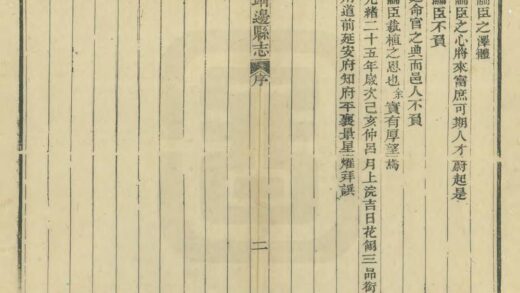 臣之澤體
臣之心將來富庶可期人才蔚起是
臣不負
命官之典而邑人不負
臣栽植之恩也余實有厚望焉
光緒二十五年歲次己亥仲呂月上浣吉日花翎三品銜
道前延安府知府平襄景星耀拜譔
邊縣志
序
二